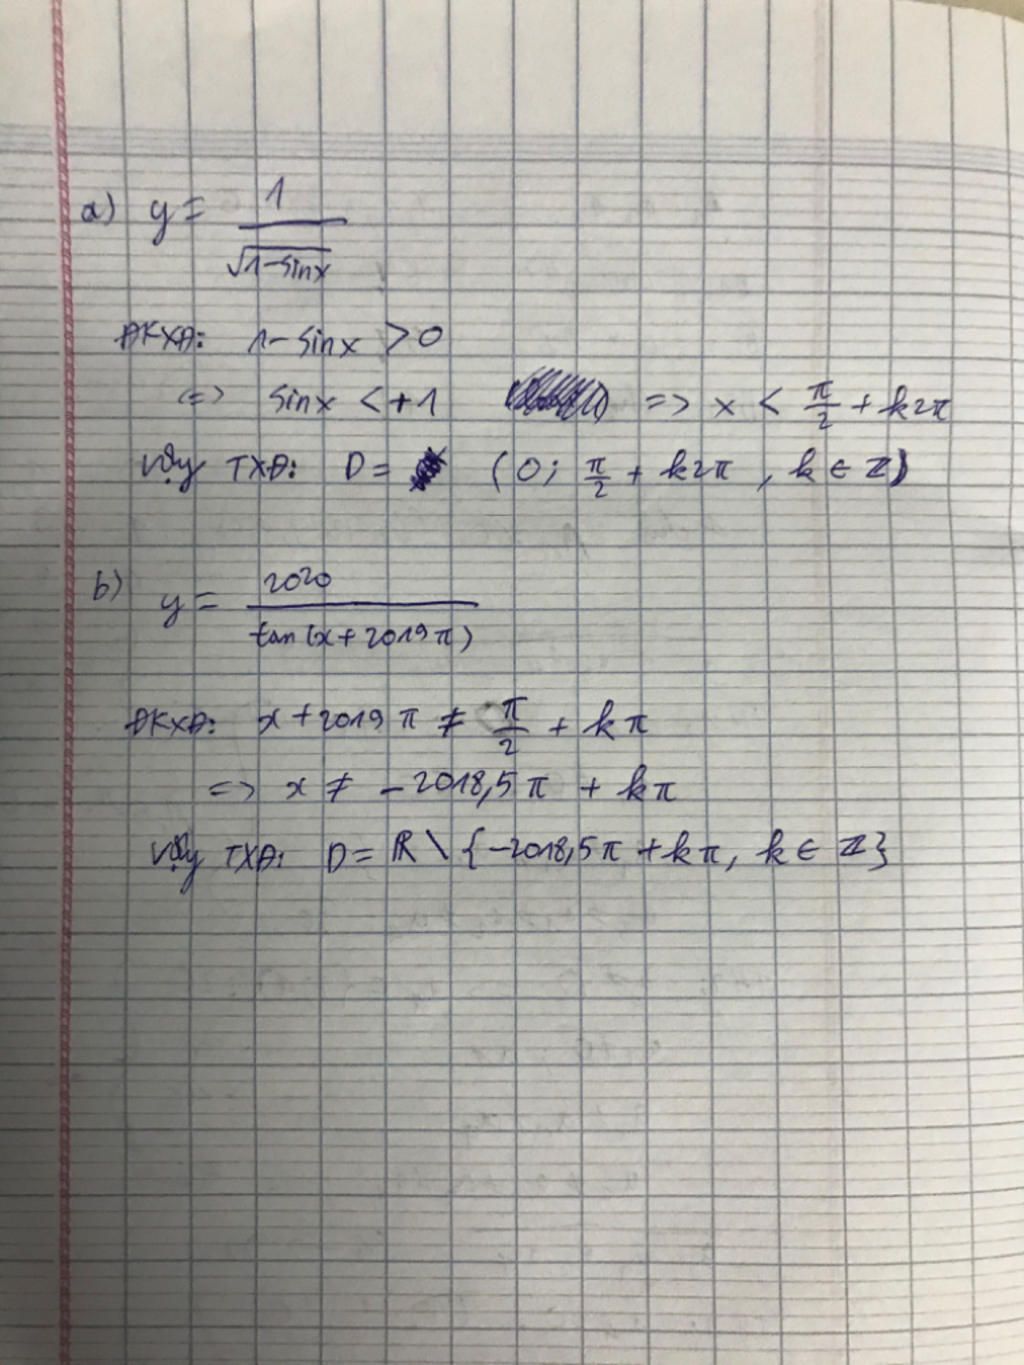 a) y = 1 / √(1-sinx)
ĐKXĐ: 1-sinx > 0
<=> sinx < +1 => x < π/2 + k2π
Vậy TXĐ: D = (0; π/2 + k2π, k ∈ ℤ)
b) y = 2020 / tan(x+2019π)
ĐKXĐ: x+2019π ≠ π/2 + kπ
=> x ≠ -2018,5π + kπ
Vậy TXĐ: D = ℝ \ {-2018,5π + kπ, k ∈ ℤ}